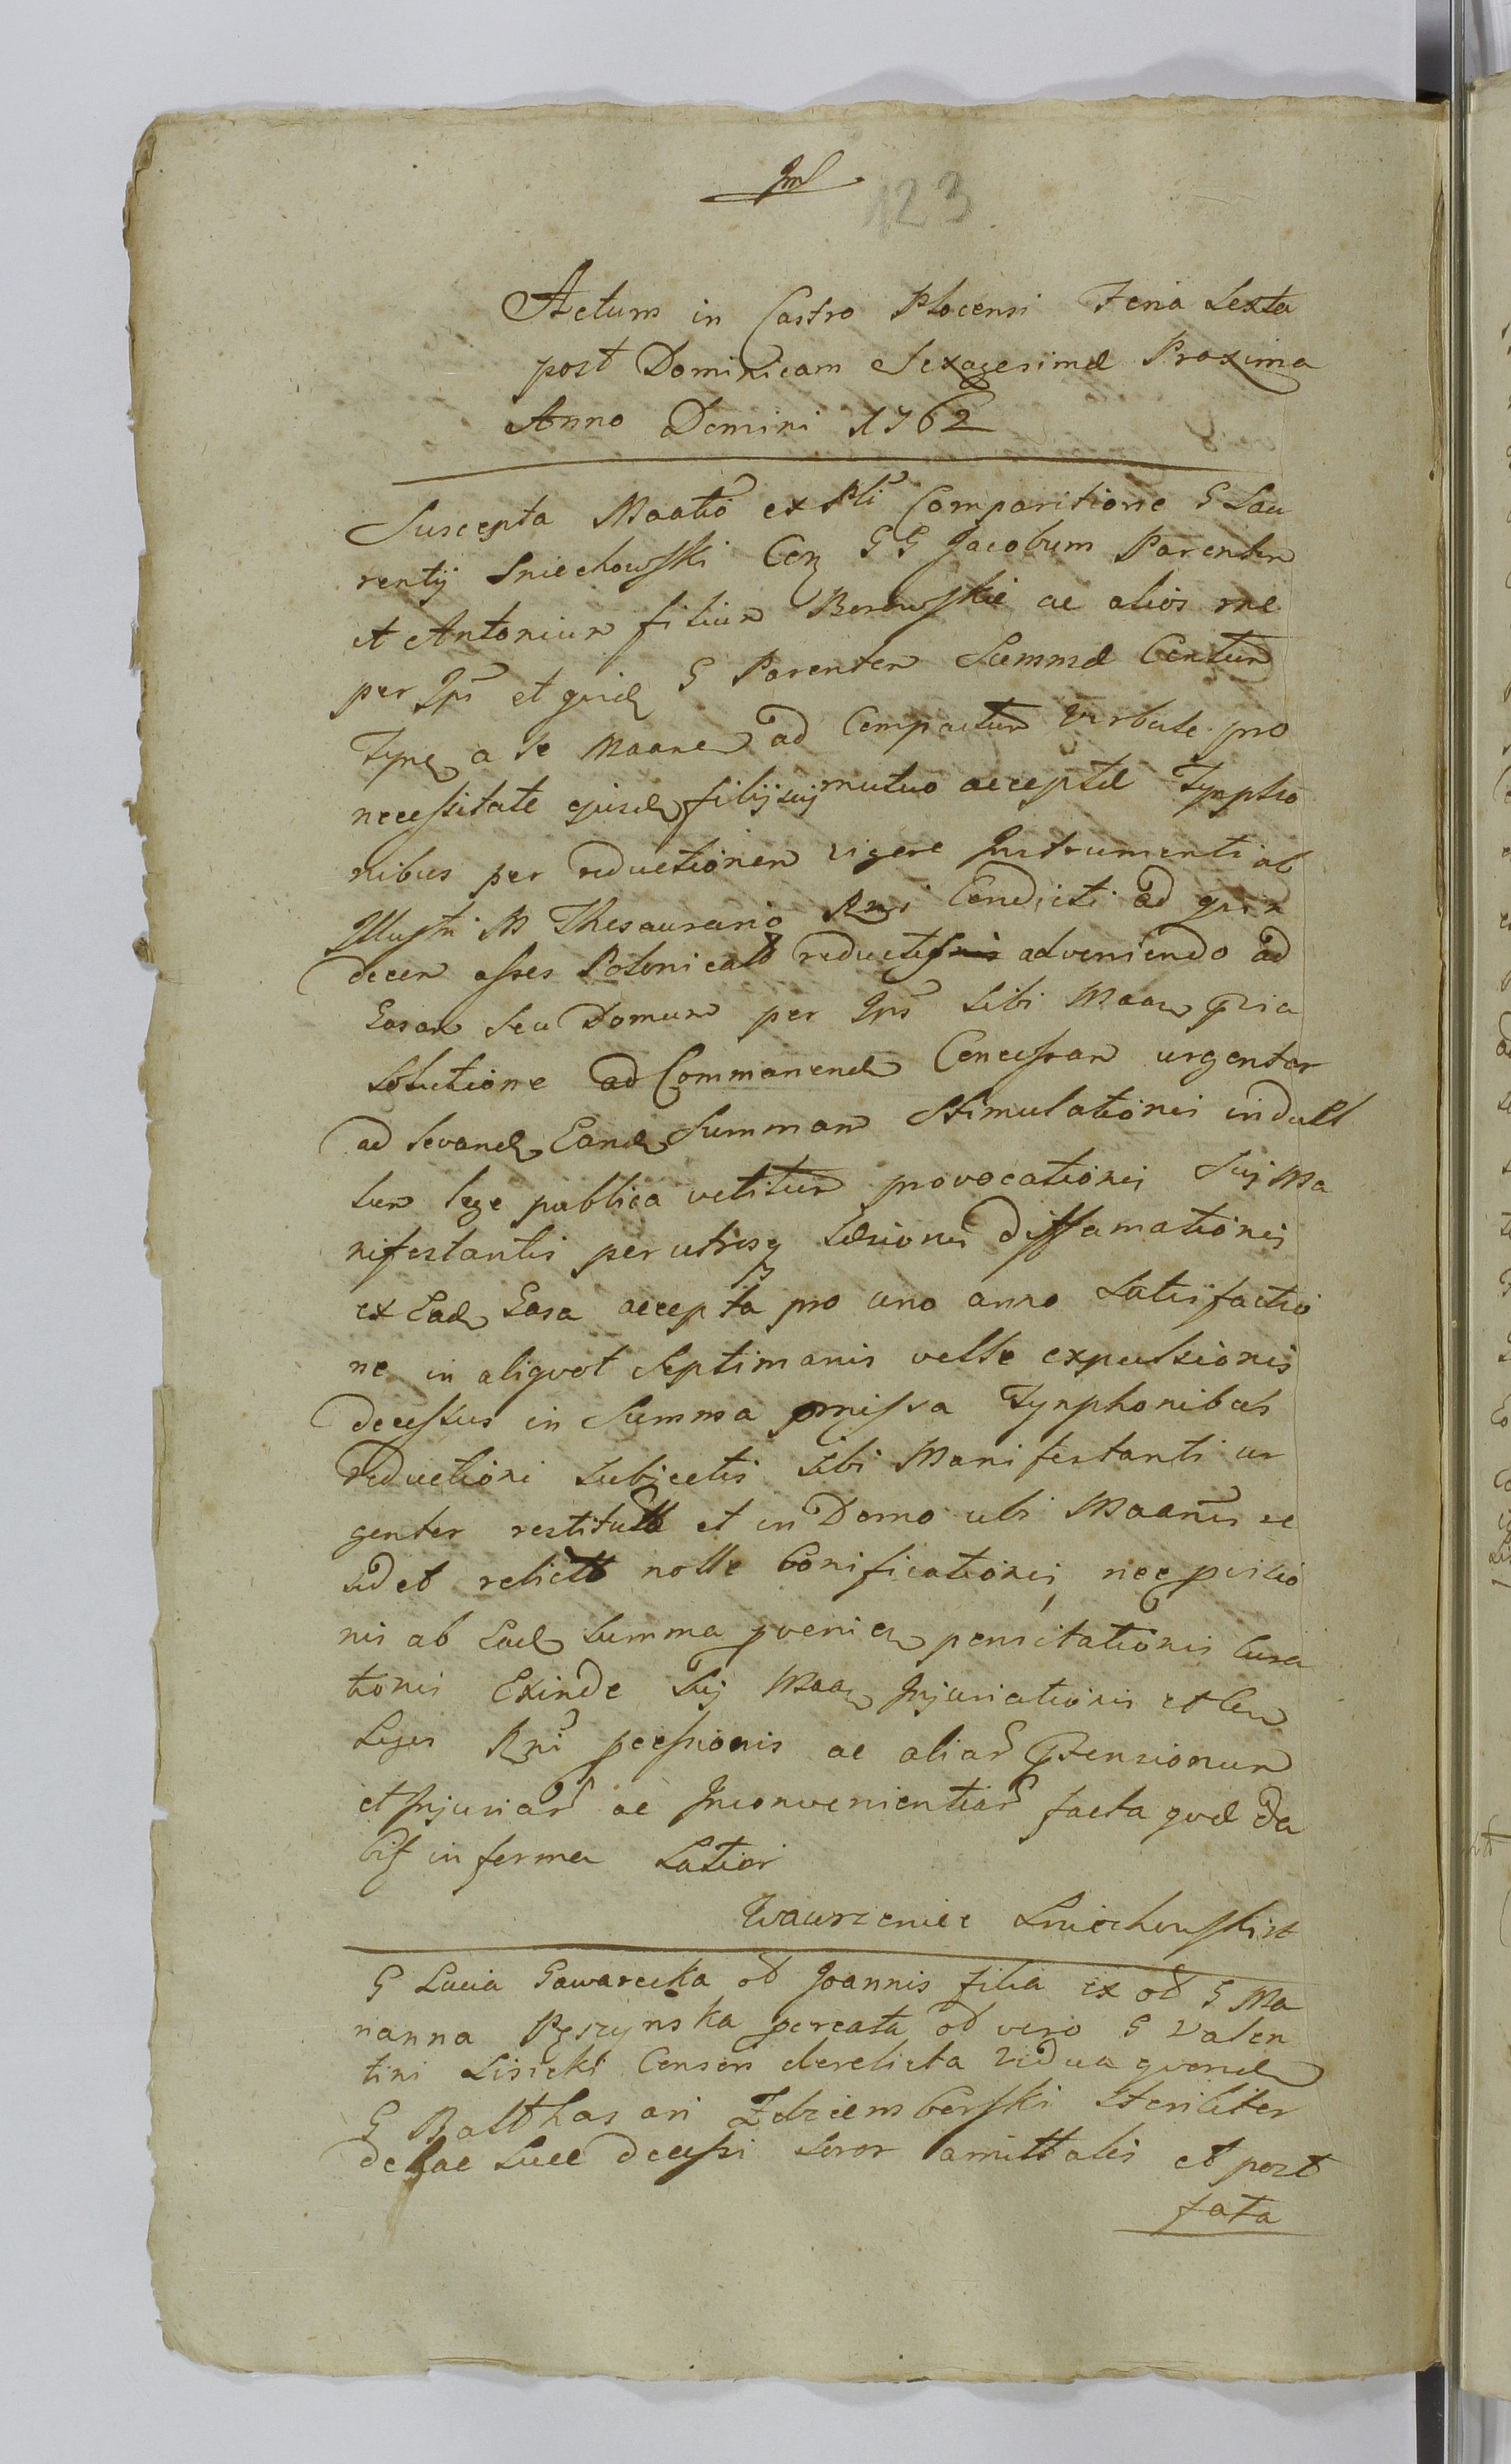 123
Actum in Castro Plocensi Feria Sexta
post Dominicam Sexagesimæ Proxima
Anno Domini 1762
Suscepta Maatio ex Pli Comparitione G Lau
rentij Sniechowski Con GG Jacobum Parentem
et Antonium filium Borowskie ac alios me
per Ips et quid G Parentem Summæ Centum
Tynf a se Maane ad Compactum verbale pro
necessitate ejusd filij sui mutuo acceptæ Tynpho
nibus per reductionem vigore Instrumenti ab
Illustri M Thesaurario Rni Condicti ad quin
decem asses Polonicales reductis adveniendo ad
Easam seu Domum per Ips sibi Maan
Solutione ad Commanend Concessam urgenter
ad levand Eand Summam Stimulationis indult
lem lege publica vetitum provocationis Sui Ma
nifestantis per utrosq Læsionis diffamationis
ex Ead Easa accepta pro uno anno Satisfactio
ne in aliquot Septimanis velle expulsionis
decessus in Summa pmissa Tynphonibus
reductioni subjectis sibi Manifestanti ur
genter restitutæ et in Domo ubi Maanis re
sidet relictæ nolle bonificationis, nec
nis ab Ead Summa pensitationis Cura
tionis Exinde Sui Maan Injuriationis et Cen
Leges Rni pcessionis ac aliar Ptensionum
et Injuriar ac Inconvenientiar facta quæ da
bit in forma Latior
Wawrzeniec Sniechowski
G Lucia Gawarecka od Joannis filia ex od G Ma
rianna Pęszynska pcreata od vero G Valen
tini Lisicki Consors derelicta vidua quond
G Balthasari Zdziemborski Steriliter
de hac Luce decessi Soror amittalis et post
fata